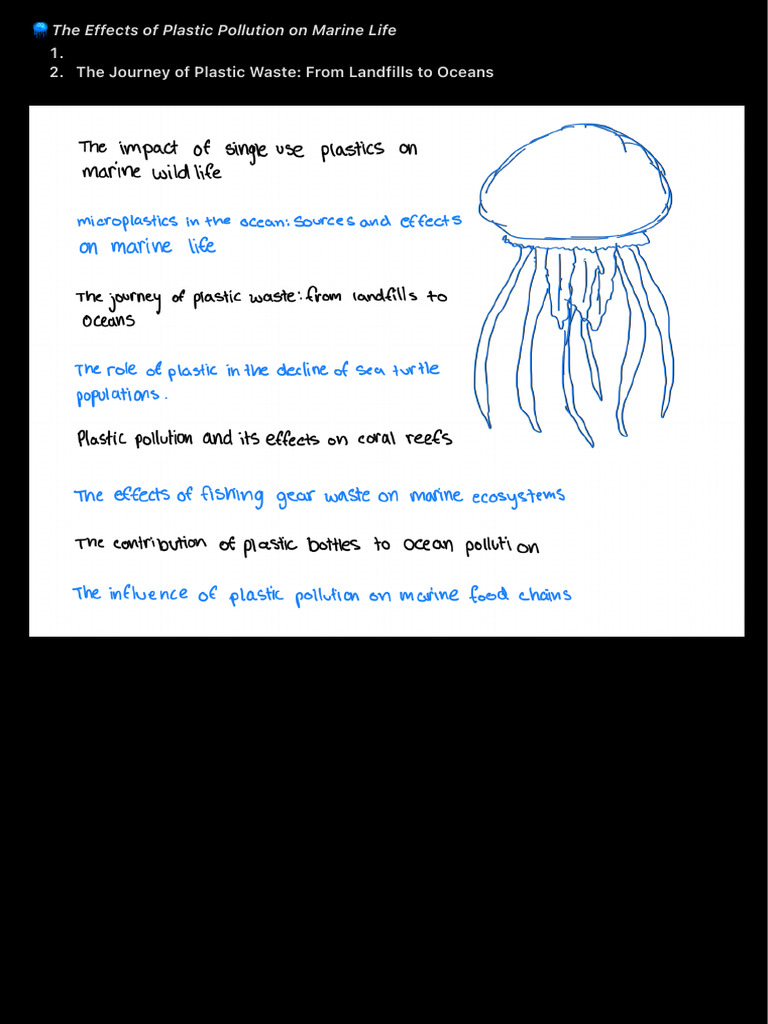 The Effects of Plastic Pollution on Marine Life
1.
2. The Journey of Plastic Waste: From Landfills to Oceans
The impact of single use plastics on
marine wildlife
microplastics in the ocean: Sources and effects
on marine life
The journey of plastic waste: from landfills to
oceans
The role of plastic in the decline of sea turtle
populations.
Plastic pollution and its effects on coral reefs
The effects of fishing gear waste on marine ecosystems
The contribution of plastic bottles to ocean pollution
The influence of plastic pollution on marine food chains